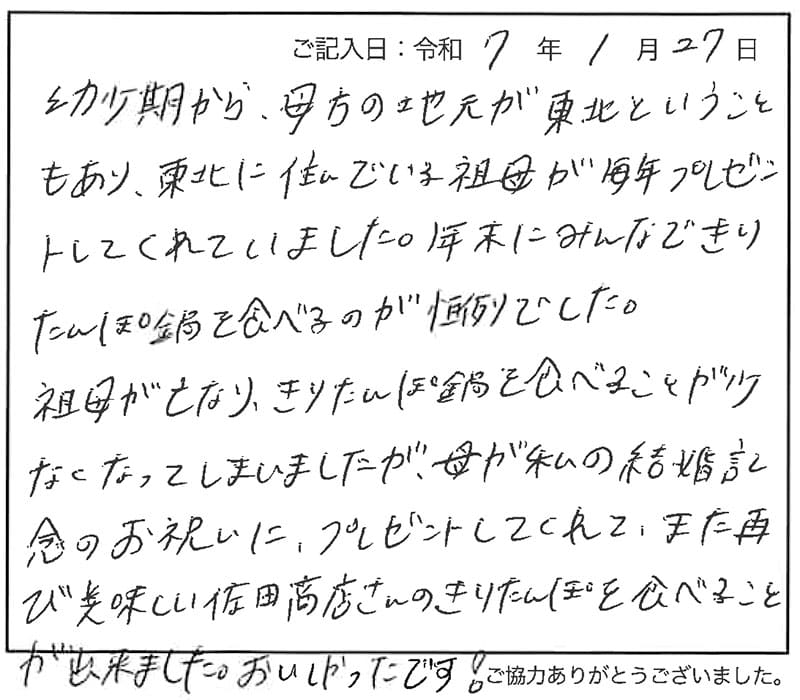 ご記入日：令和 7 年 1 月 27 日
幼少期から、母方の地元が東北ということ
もあり、東北に住んでいる祖母が毎年プレゼン
トしてくれていました。年末にみんなできり
たんぽ鍋を食べるのが恒例でした。
祖母が亡なり、きりたんぽ鍋を食べることが少
なくなってしまいましたが、母が私の結婚記
念のお祝いに、プレゼントしてくれて、また再
び美味しい佐田商店さんのきりたんぽを食べること
が出来ました。おいしかったです！
ご協力ありがとうございました。